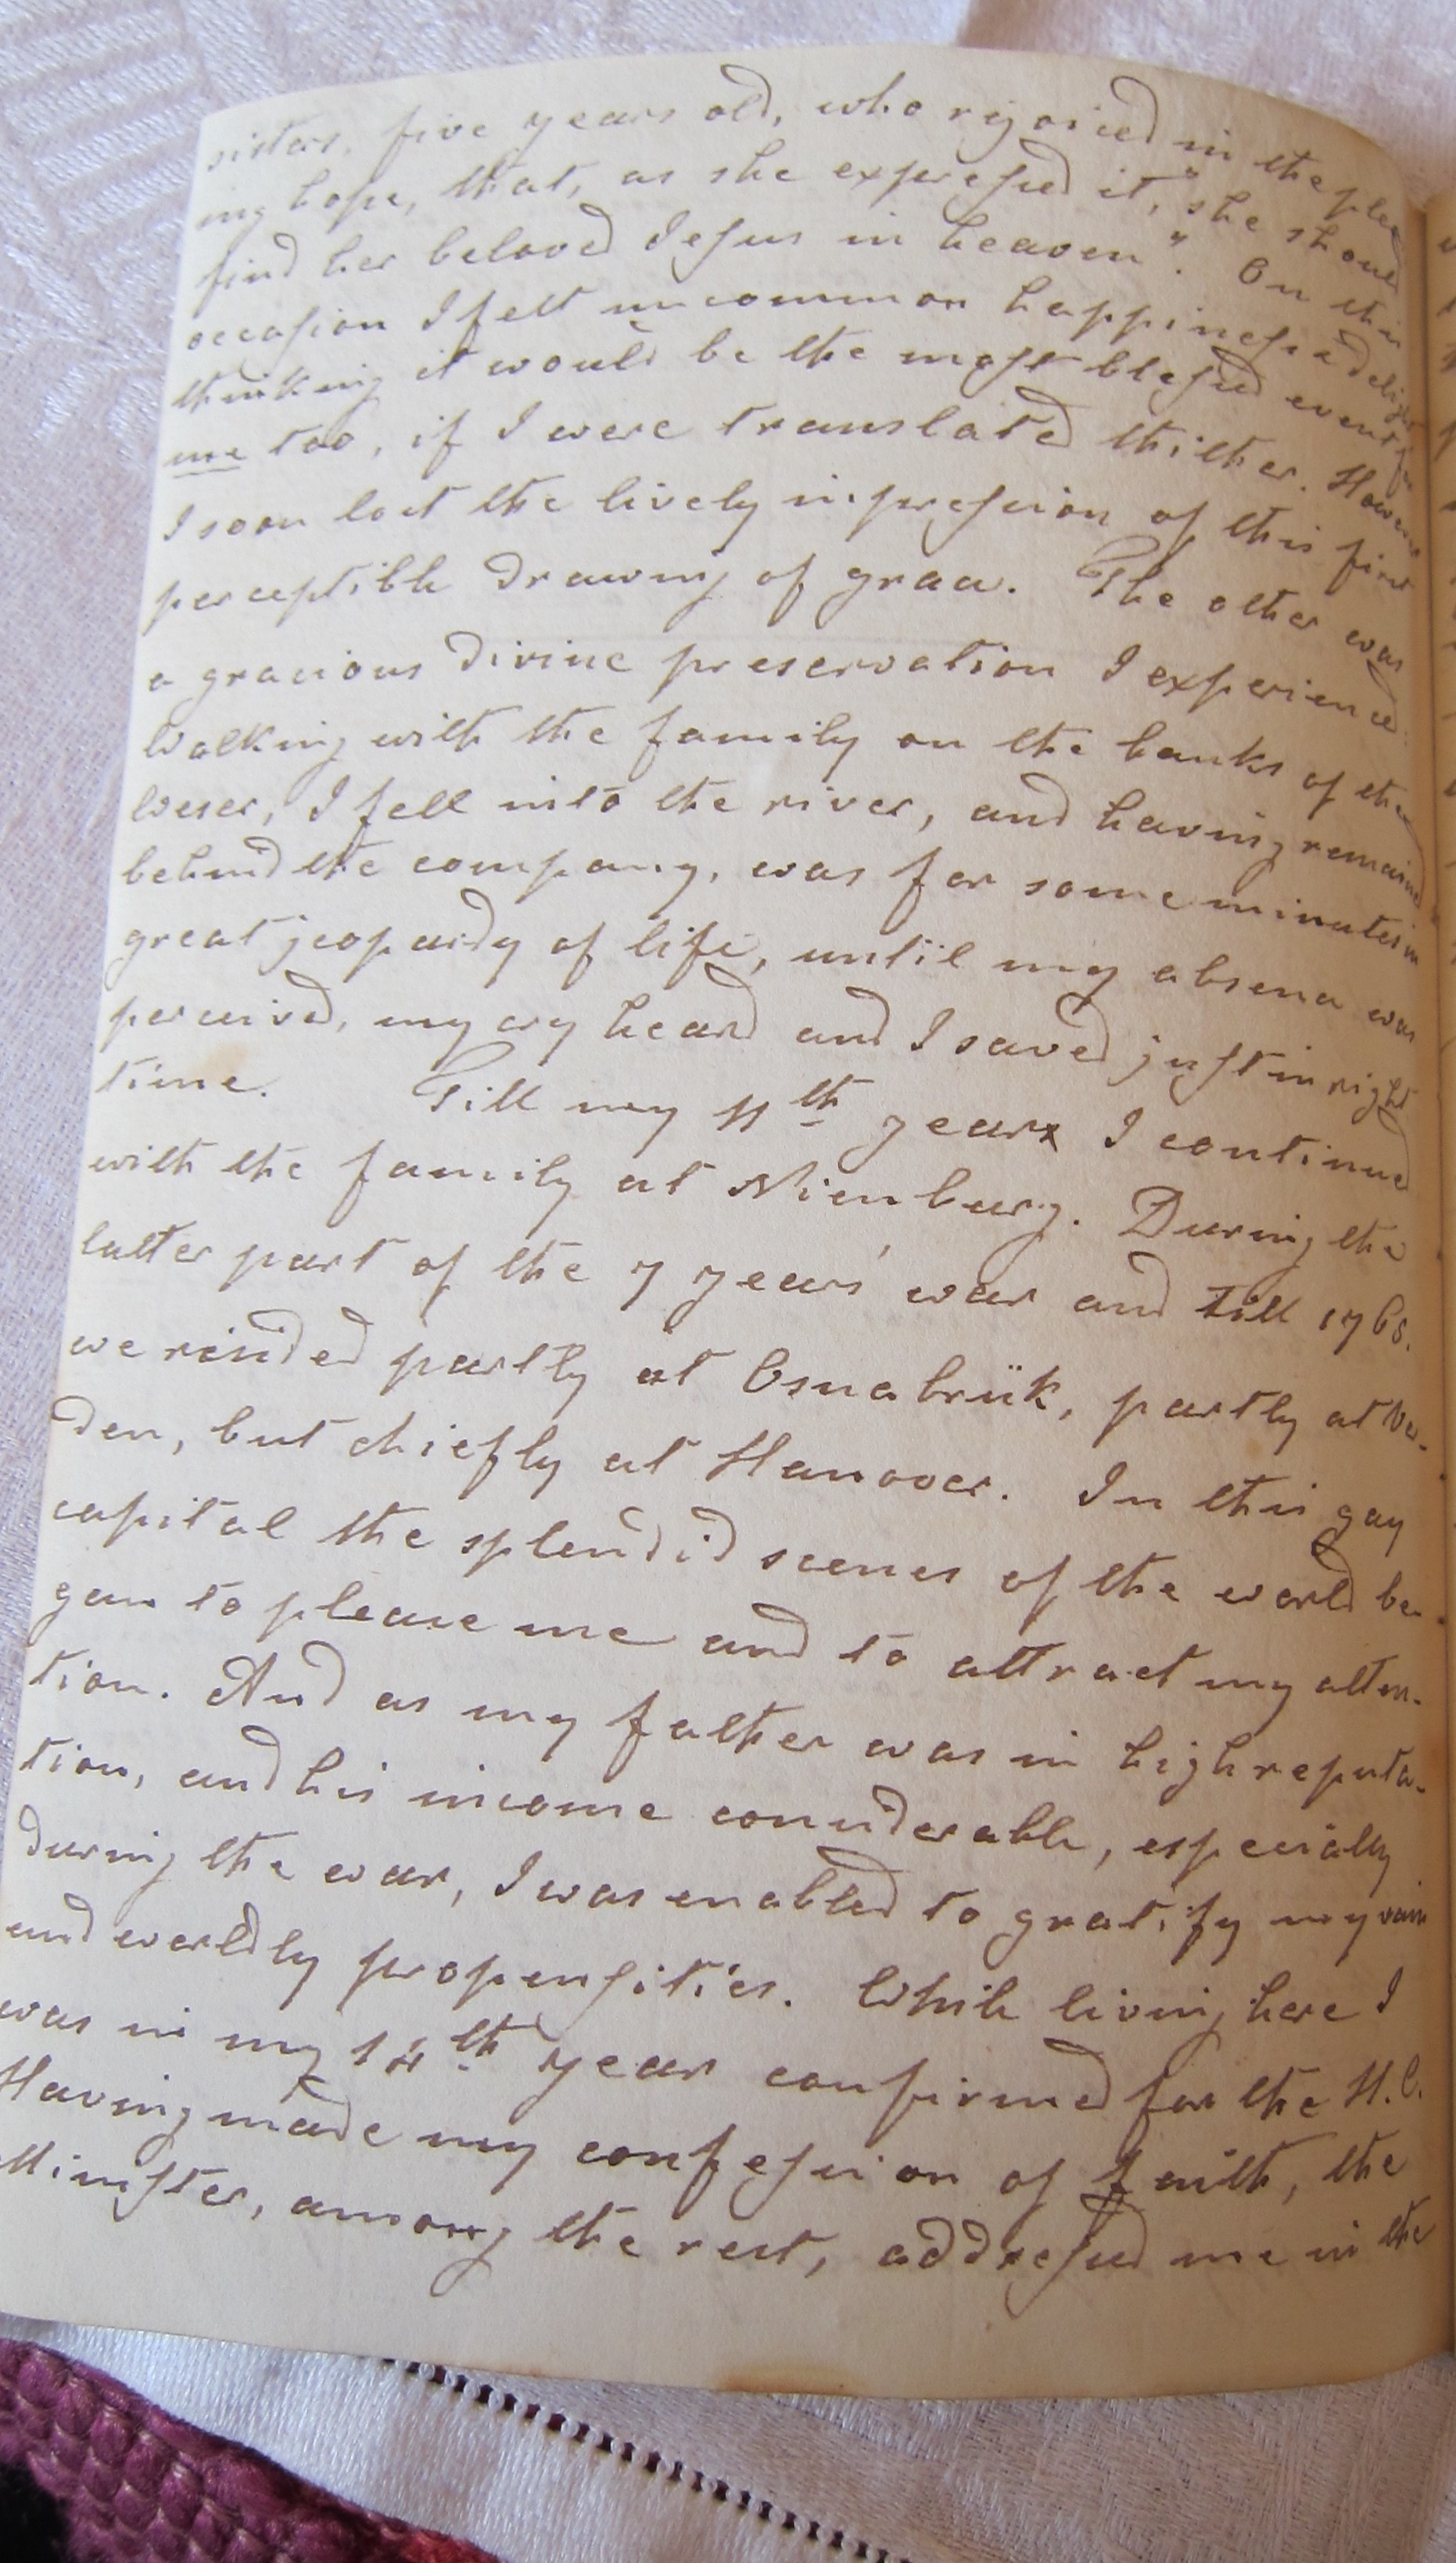 sisters, five years old, who rejoiced in the pleas
ing hope, that, as she expreſsed it, "she should
find her beloved Jesus in heaven". On this
occaſion I felt uncommon happineſs & delight
thinking it would be the moſt bleſsed event for
me too, if I were translated thither. However
I soon lost the lively impreſsion of this first
perceptible drawing of grace. The other was
a gracious divine preservation I experienced.
Walking with the family on the banks of the
Weser, I fell into the river, and having remained
behind the company, was for some minutes in
great jeopardy of life, until my absence was
perceived, my cry heard and I saved juſt in right
time. Till my 11th year I continued
with the family at Nienburg. During the
latter part of the 7 years' war and till 1765.
we resided partly at Osnabrük, partly at Ver-
den, but chiefly at Hanover. In this gay
capital the splendid scenes of the world be-
gan to please me and to attract my atten-
tion. And as my father was in high reputa-
tion, and his income considerable, especially
during the war, I was enabled to gratify my vain
and worldly propenſities. While living here I
was in my 14th year confirmed for the H. C.
Having made my confeſsion of faith, the
Miniſter, among the rest, addreſsed me in the